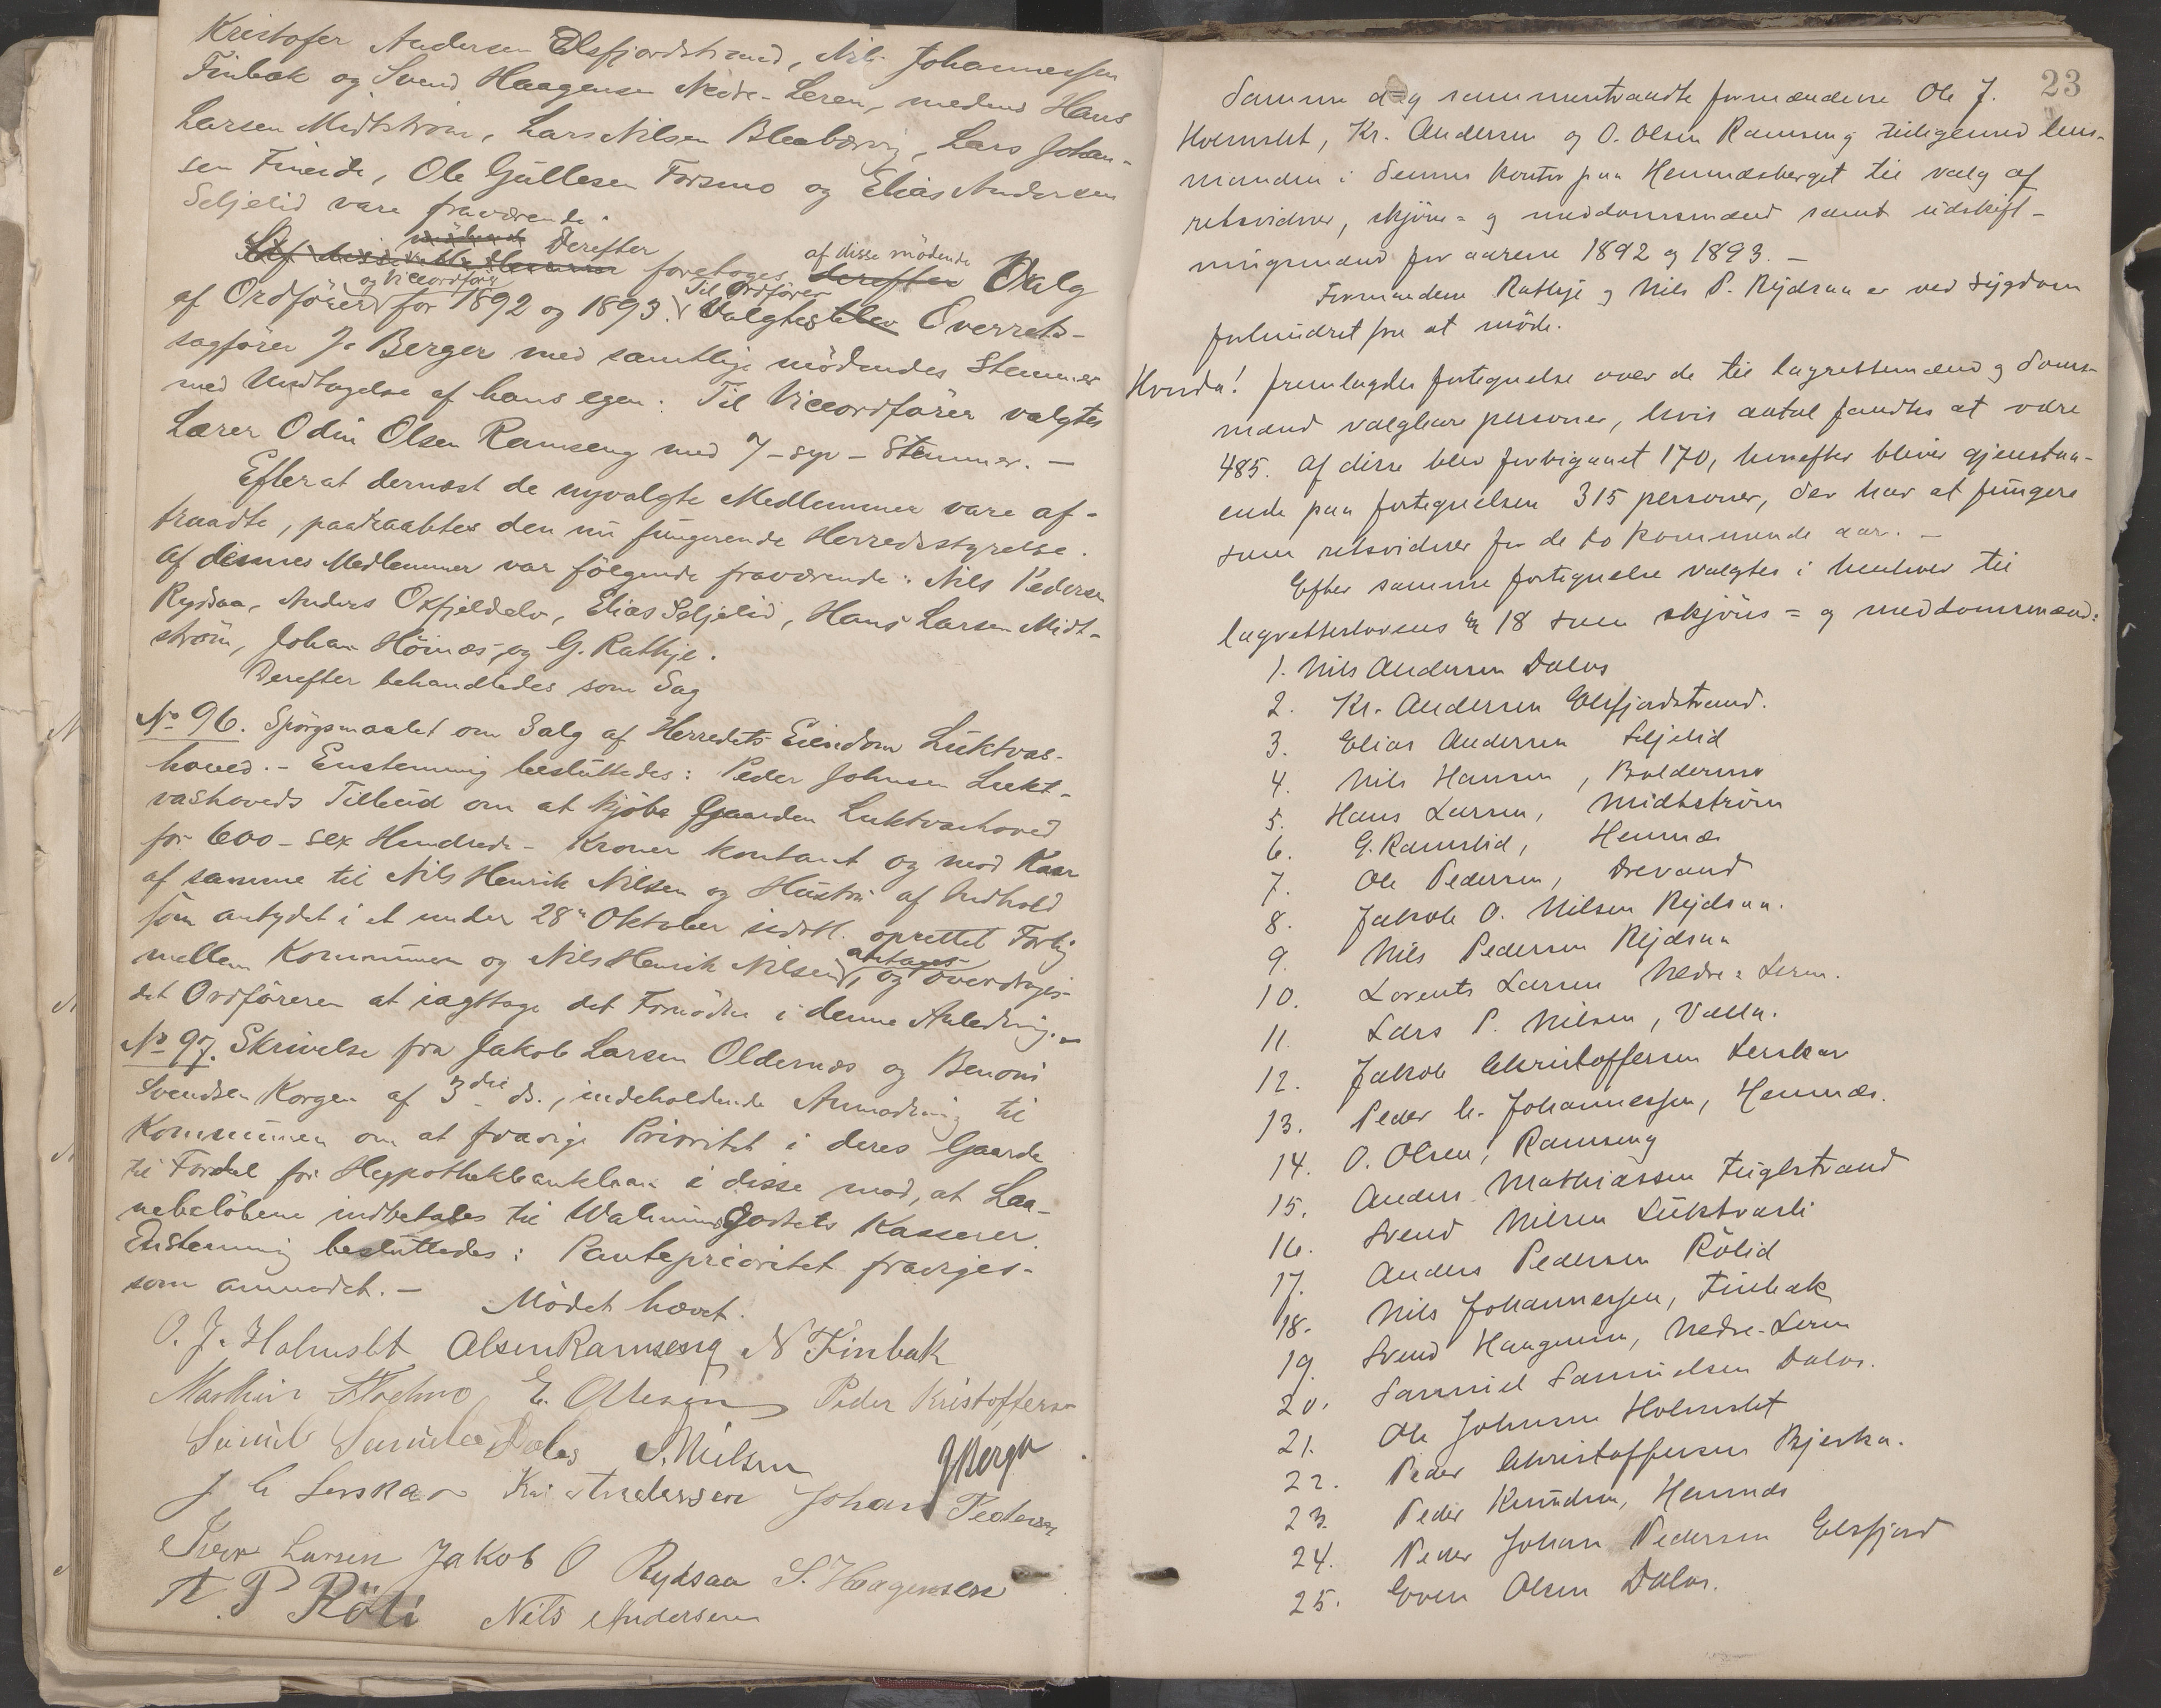 Kristofer Andersen Elsfjordstrand, Nils Johannessen
Finbak og Svend Haagensen Nedre-Leren, medens Hans
Larsen Midtström, Lars Nilsen Bleabærvig, Lars Johan-
sen Fineide, Ole Gullesen Forsmo og Elias Andersen
Seljelid vare fraværende.
mödende Derefter af disse mödende
foretoges derefter Valg
og Viceordförer Til Ordförer
af Ordförer for 1892 og 1893. Valgtes blev Overrets-
sagförer J. Berger med samtlige mödendes Stemmer
med Undtagelse af hans egen. Til Viceordförer valgtes
Lærer Odin Olsen Ramseng med 7 - syv - Stemmer. -
Efterat dernæst de nyvalgte Medlemmer vare af-
traadte, paaraabtes den nu fungerende Herredsstyrelse.
Af dennes Medlemmer var fölgende fraværende: Nils Pedersen
Rydsaa, Anders Oxfjeldelv, Elias Seljelid, Hans Larsen Midt-
ström, Johan Hörnæs, og G. Rathje.
Derefter behandledes som Sag
No 96. Spörgsmaalet om Salg af Herredets Eiendom Luktvas-
hoved. - Enstemmig besluttedes: Peder Johnsen Lukt-
vashoveds Tilbud om at kjöbe Gaarden Luktvashoved
for 600 - sex Hundrede - Kroner kontant og mod Kaar
af samme til Nils Henrik Nilsen og Hustru af Indhold
som antydet i et under 28de Oktober sidstl. oprettet Forlig
antages
mellem Kommunen og Nils Henrik Nilsen, og overdrages-
det Ordföreren at iagttage det Fornödne i denne Anledning. -
No 97. Skrivelse fra Jakob Larsen Oldernæs og Benoni
Svendsen Korgen af 3die ds., indeholdende Anmodning til
Kommunen om at fravige Prioritet i deres Gaarde
til Fordel for Hypothekbanklaan i disse mod, at Laa-
nebelöbene indbetales til Walnumgodsets Kasserer.
Enstemmig besluttedes: Panteprioritet fraviges-
som anmodet. - Mödet hævet.
O. J. Holmslet Olsen Ramseng N Finbak
E. Olsen Peder Kristoffersen
Samuel Samuelsen Dalos S. Nilsen JBerger
J C Lerskar Kr. Andersen Johan Pedersen
Iver Larsen Jakob O Rydsaa S. Haagensen
A. P Röli Nils Andersen
23
Samme dag sammentraadte formændene Ole J.
Holmslet, Kr. Andersen og O. Olsen Ramseng tilligemed lens-
manden i dennes kontor paa Hemnæsberget til valg af
retsvidner, skjöns= og meddomsmænd samt udskift-
ningsmænd for aarene 1892 og 1893. -
Formændene Rathje og Nils P. Rydsaa er ved sygdom
forhindret fra at möde.
Hvorda! fremlagdes fortegnelse over de til lagrettemænd og doms-
mænd valgbare personer, hvis antal fandtes at være
485. Af disse blev forbigaaet 170, hvorefter bliver gjenstaa-
ende paa fortegnelsen 315 personer, der har at fungere
som retsvidner for de to kommende aar. -
Efter samme fortegnelse valgtes i henhold til
lagrettelovens § 18 som skjöns= og meddomsmænd:
1. Nils Andersen Dalos
2. Kr. Andersen Elsfjordstrand.
3. Elias Andersen Seljelid
4. Nils Hansen, Baldermo
5. Hans Larsen, Midtström
6. G. Ramslid, Hemnæs
7. Ole Pedersen, Drevand
8. Jakob O. Nilsen Rydsaa.
9. Nils Pedersen Rydsaa
10. Lorents Larsen Nedre-Leren.
11. Lars P. Nilsen, Valla.
12. Jakob Christoffersen Lerskar
13. Peder C. Johannessen, Hemnæs.
14. O. Olsen, Ramseng
15. Anders Mathiassen Fuglstrand
16. Svend Nilsen Luktvasli
17. Anders Pedersen Rölid
18. Nils Johannessen, Finbak
19. Svend Haagensen, Nedre-Leren
20. Samuel Samuelsen Dalos.
21. Ole Johnsen Holmslet
22. Peder Christoffersen Bjerka.
23. Peder Knudsen, Hemnæs
24. Peder Johan Pedersen Elsfjord
25. Even Olsen Dalos.